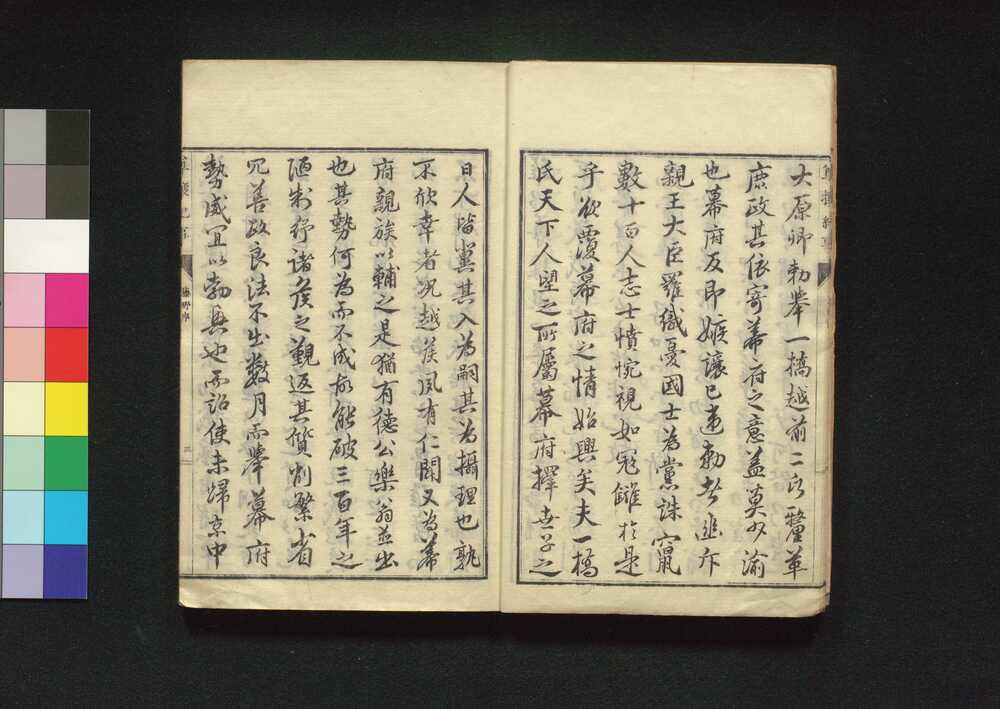 大原卿勅舉一橋越前二氏釐革
庶政其依寄幕府之意蓋莫少渝
也幕府反即嫉讓已違勅書逐斥
親王大臣羅織憂國士為黨誅竄
數十百人志士憤惋視如寇讎於是
乎欲覆幕府之情始興矣夫一橋
氏天下人望之所屬幕府擇世子之
日人皆冀其入為嗣其為攝理也孰
不欣幸者况越侯夙有仁聞又為幕
府親族以輔之是猶有德公樂翁並出
也其勢何為而不成故能破三百年之
陋制紓諸侯之覲返其質削繁省
冗善政良法不出數月而舉幕府
勢威宜以勃興也而詔使未歸京中
三